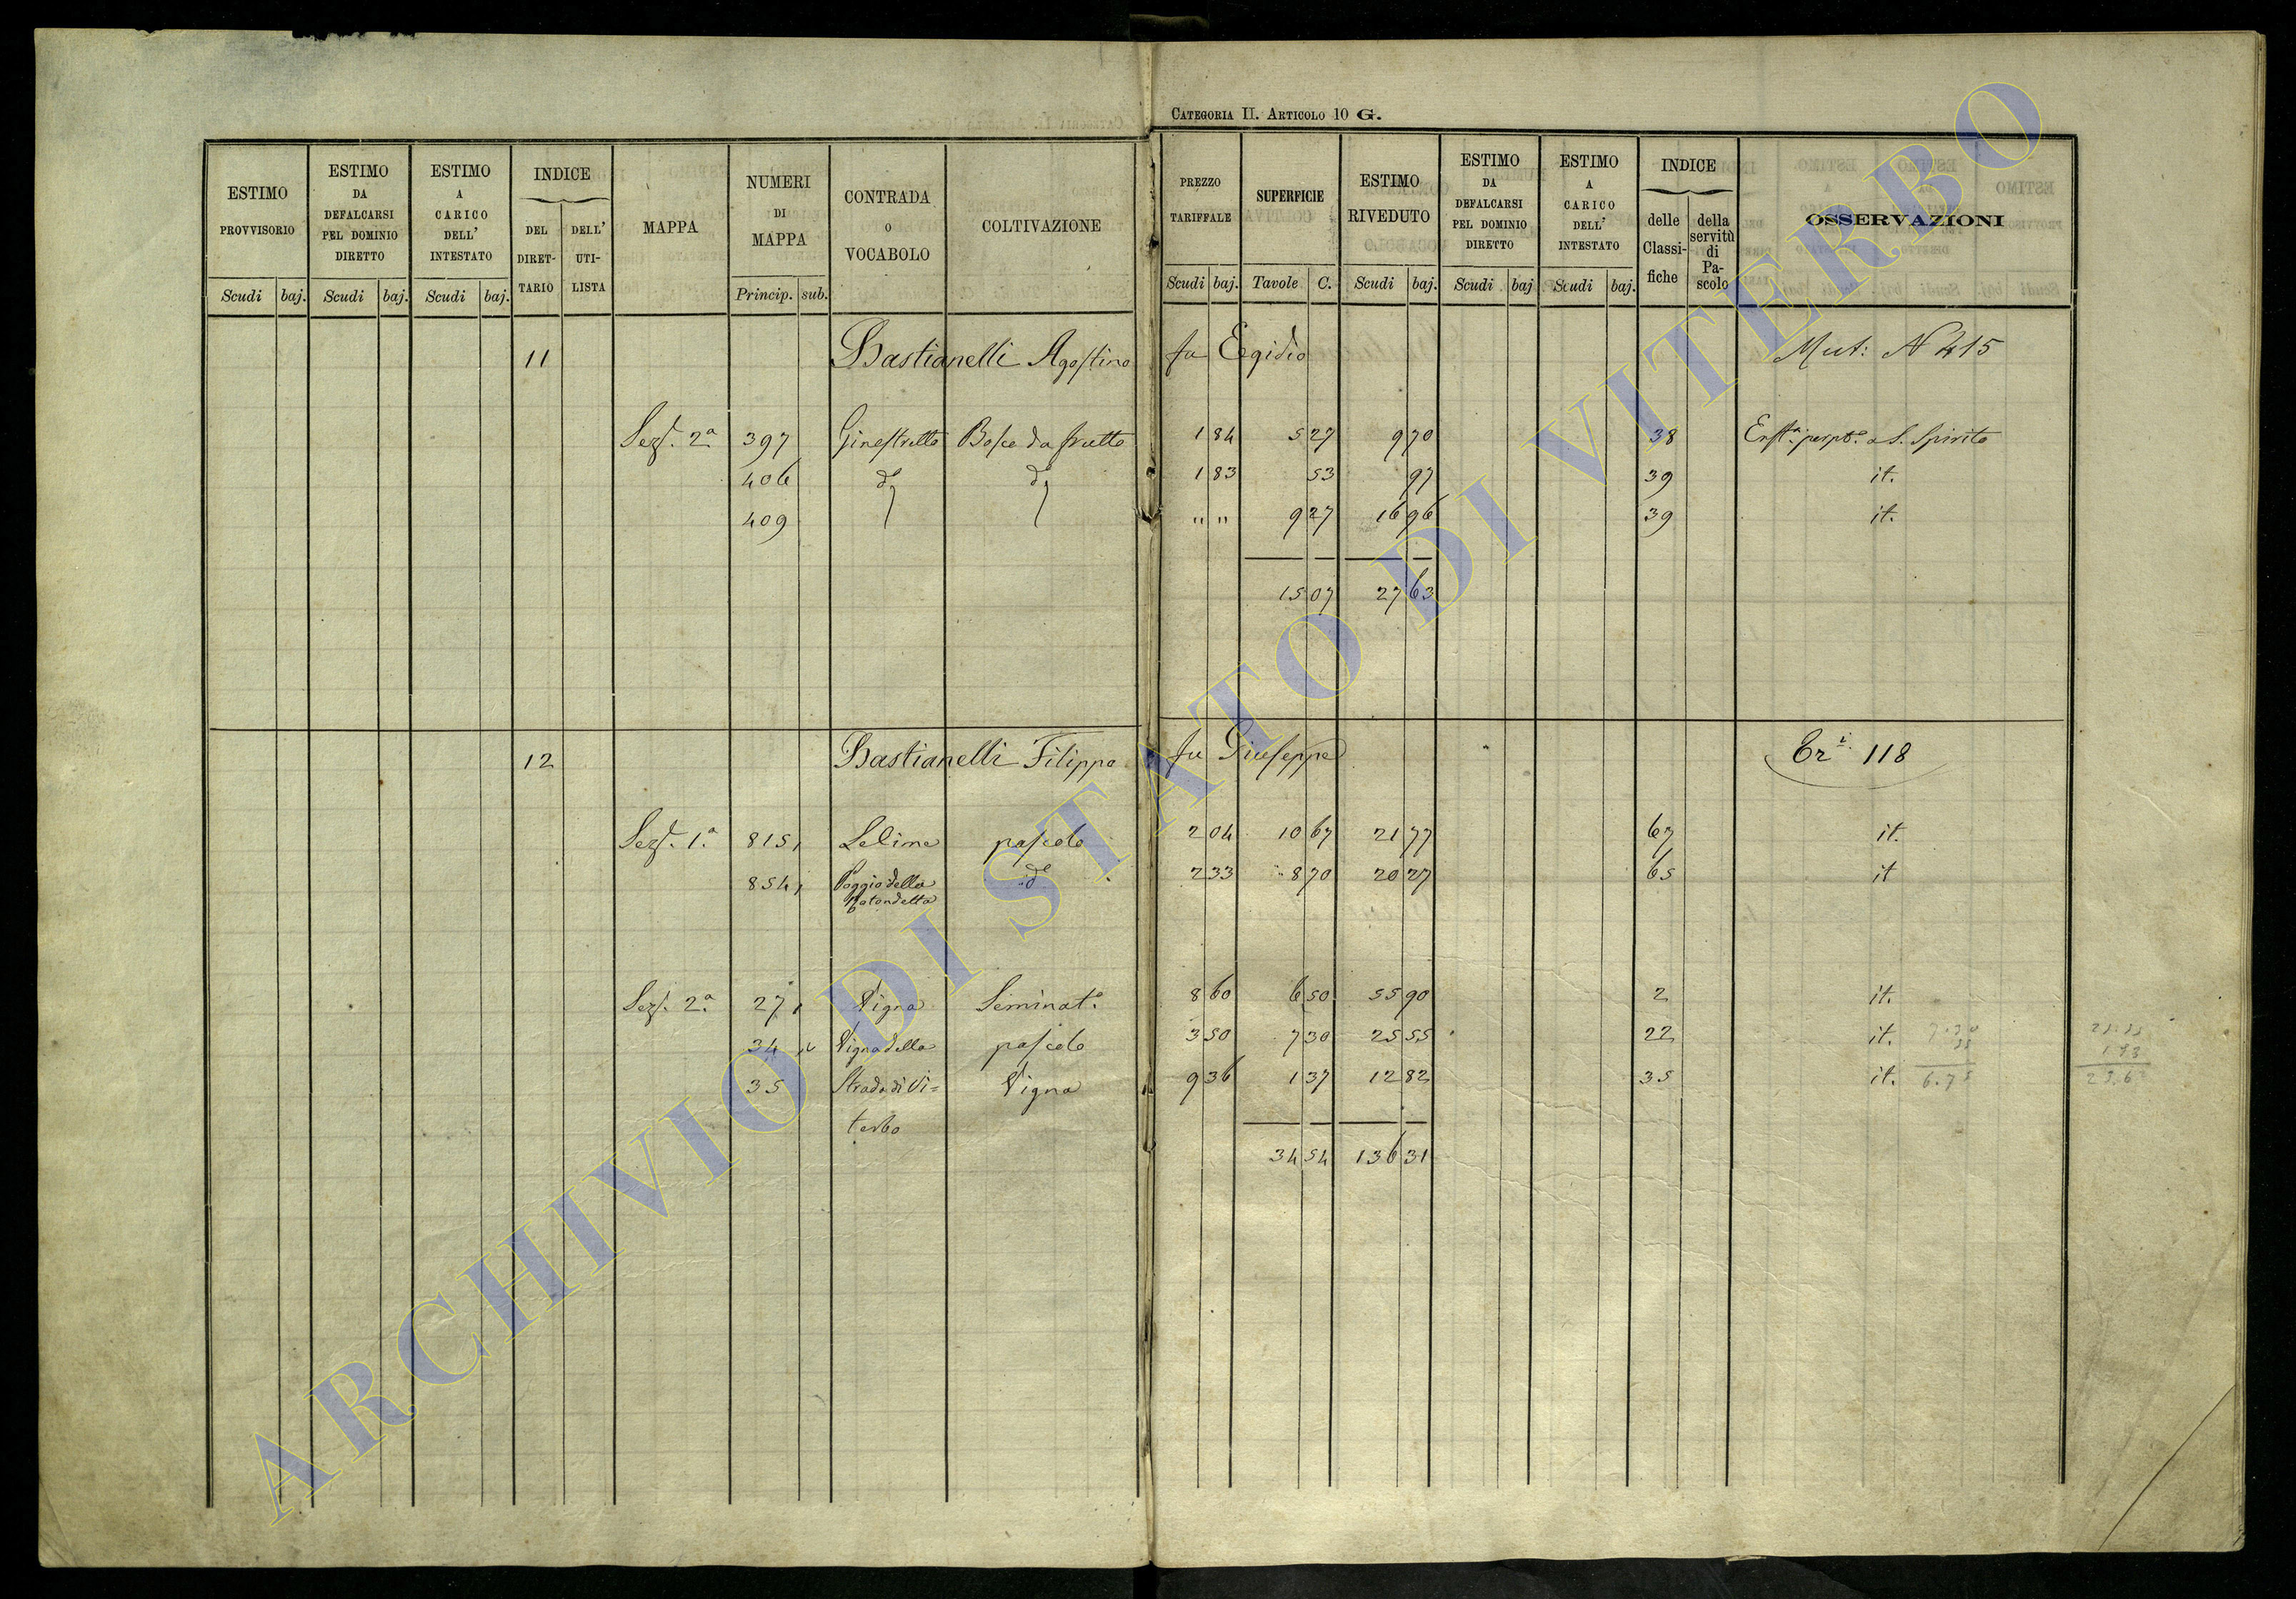 CATEGORIA II. ARTICOLO 10 G.
ESTIMO PROVVISORIO Scudi baj.
ESTIMO DA DEFALCARSI PEL DOMINIO DIRETTO Scudi baj.
ESTIMO A CARICO DELL' INTESTATO Scudi baj.
INDICE DEL DIRETTARIO DELL' UTILISTA
MAPPA
NUMERI DI MAPPA Princip. sub.
CONTRADA O VOCABOLO
COLTIVAZIONE
PREZZO TARIFFALE Scudi baj.
SUPERFICIE Tavole C.
ESTIMO RIVEDUTO Scudi baj.
ESTIMO DA DEFALCARSI PEL DOMINIO DIRETTO Scudi baj
ESTIMO A CARICO DELL' INTESTATO Scudi baj.
INDICE delle Classifiche della servitù di Pascolo
OSSERVAZIONI
11 Bastianelli Agostino fu Egidio Mut: N 415
Sezē. 2ª 397 Ginestretto Bosco da frutto 1 84 5 27 9 70 38 Enftª. perptª. a S. Spirito
406 dº dº 1 83 53 97 39 it.
409 " " 9 27 16 96 39 it.
15 07 27 63
12 Bastianelli Filippo fu Giuseppe 118
Sezē. 1ª 815 Lelime pascolo 2 04 10 67 21 77 67 it.
854 Poggio della Rotondella dº 2 33 8 70 20 27 65 it
Sezē. 2ª 27 Vigna Seminatº 8 60 6 50 55 90 2 it.
34 Vigna della pascolo 3 50 7 30 25 55 22 it.
35 Strada di Vi= Vigna 9 36 1 37 12 82 35 it. 6.75
terbo
34 54 136 31
ARCHIVIO DI STATO DI VITERBO